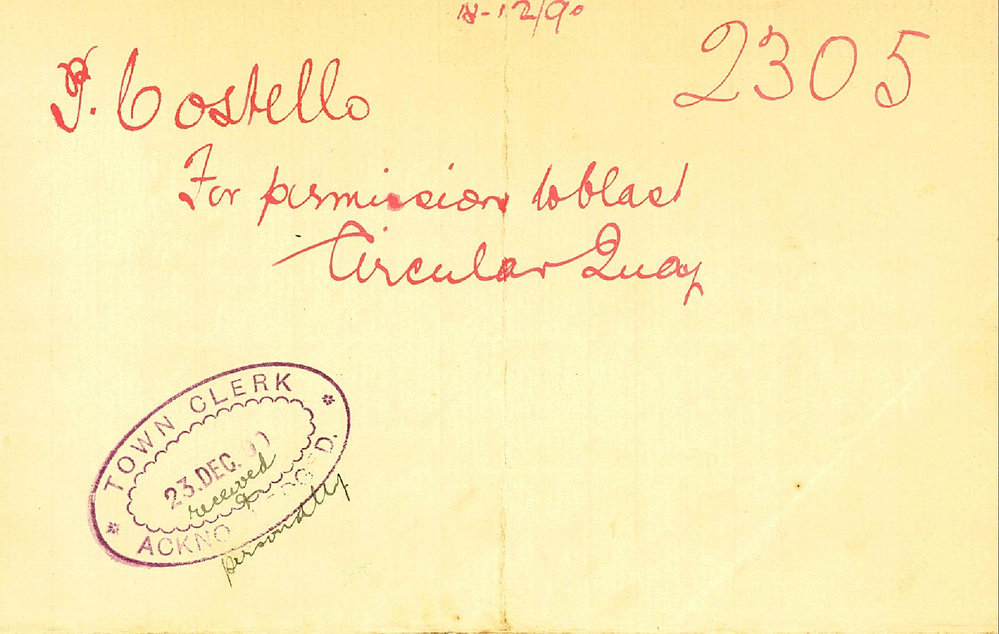 2305
P. Costello
For permission to blast
Circular Quay
TOWN CLERK
23.DEC.
received
&
personally